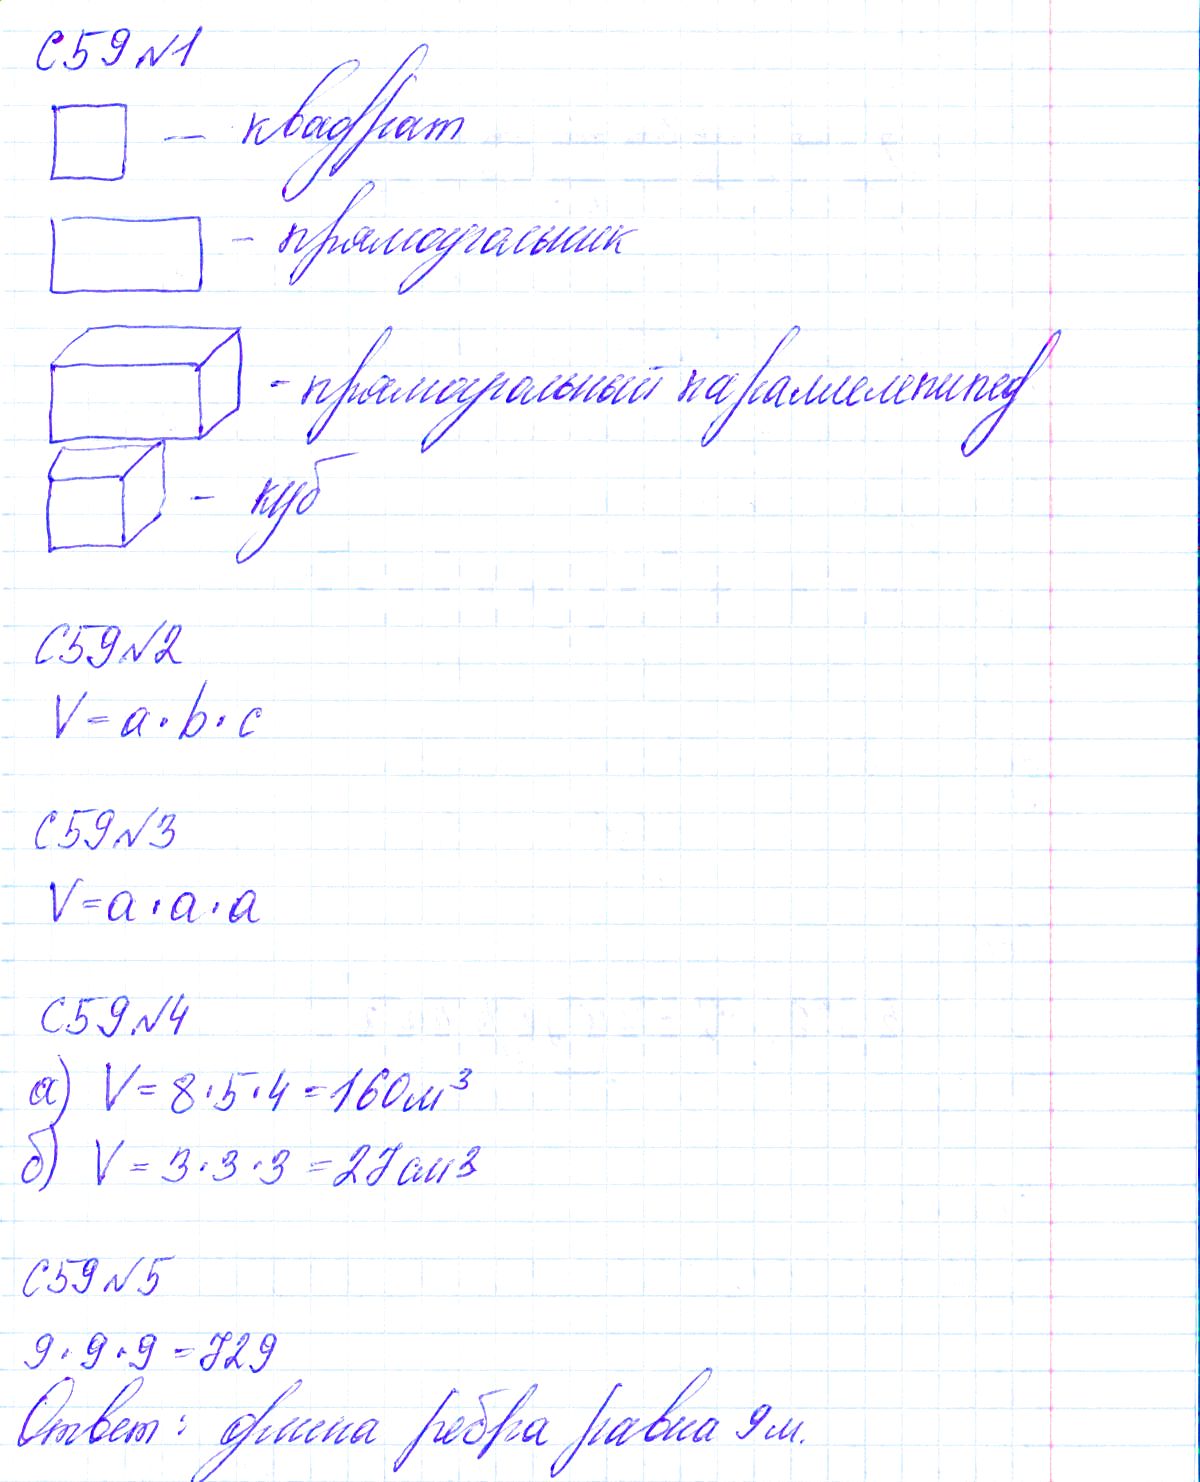 С59№1
— квадрат
— прямоугольник
- прямоугольный параллелепипед
- куб
С59№2
V=a·b·c
С59№3
V=a·a·a
С59№4
а) V=8·5·4=160м³
б) V=3·3·3=27см³
С59№5
9·9·9=729
Ответ: длина ребра равна 9м.